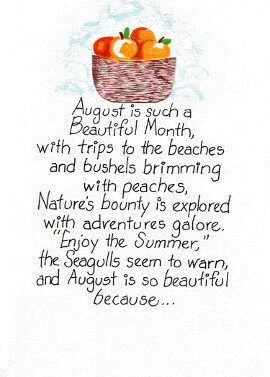 August is such a
Beautiful Month,
with trips to the beaches
and bushels brimming
with peaches,
Nature's bounty is explored
with adventures galore.
"Enjoy the Summer,"
the Seagulls seem to warn,
and August is so beautiful
because...